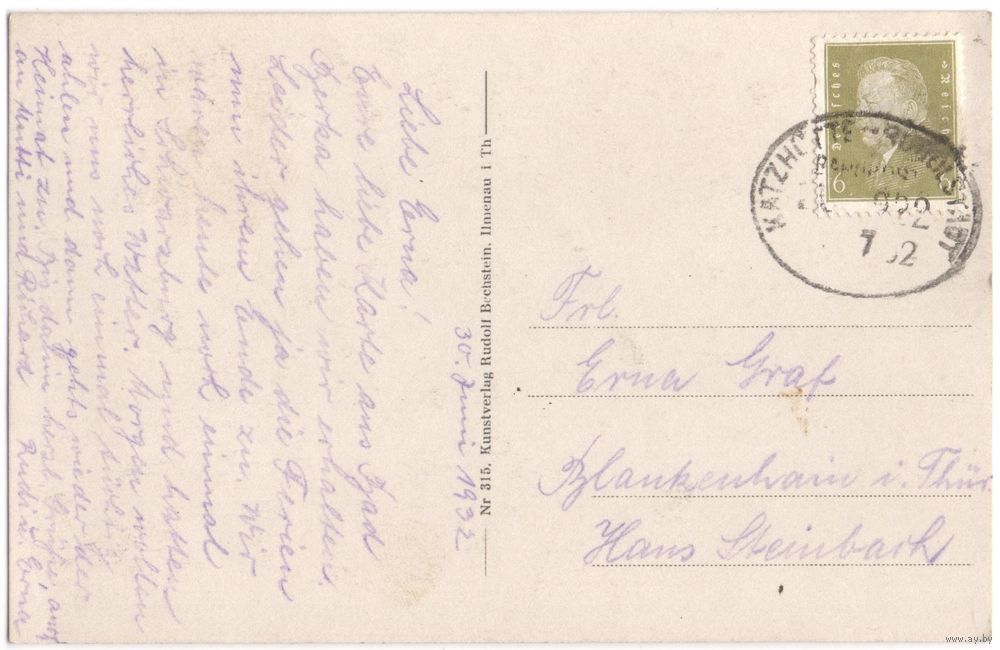 30. Juni 1932
Liebe Erna!
Eure liebe Karte aus Bad
Berka haben wir erhalten.
Leider gehen ja die Ferien
nun ihrem Ende zu. Wir
waren heute noch einmal
in Schwarzburg und hatten
herrliches Wetter. Morgen wollen
wir uns noch einmal tüchtig
aalen und dann gehts wieder der
Heimat zu. Bis dahin herzl. Grüße, auch
an Mutti und Richard Rudi u. Erna
Nr 315. Kunstverlag Rudolf Bechstein, Ilmenau i Th
Deutsches Reich
6
KATZH
922
7 32
Frl.
Erna Graf
Blankenhain i. Thür.
Haus Steinbach
www.ay.by